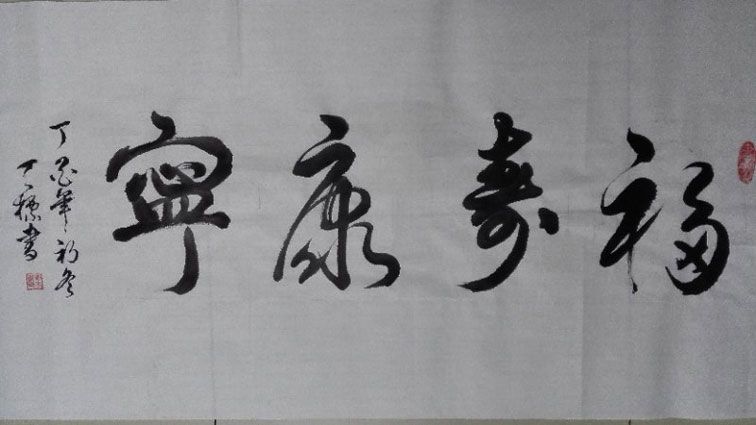 福壽康寧
丁酉年初冬
丁標書